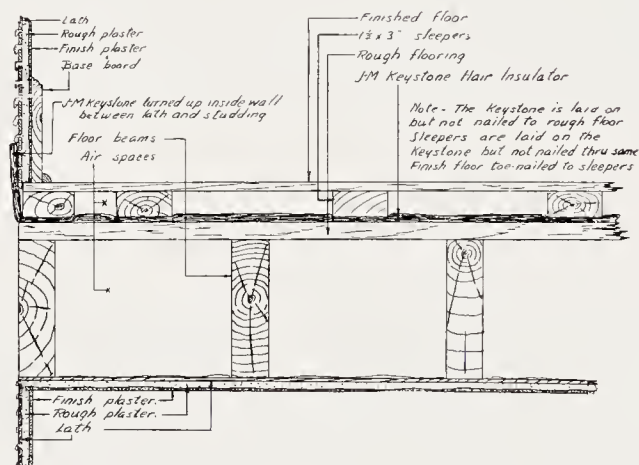 Lath
Rough plaster
Finish plaster
Base board
J-M Keystone turned up inside wall
between lath and studding
Floor beams
Air spaces
Finished floor
1½ x 3" sleepers
Rough flooring
J-M Keystone Hair Insulator
Note - The Keystone is laid on
but not nailed to rough floor
Sleepers are laid on the
Keystone but not nailed thru same
Finish floor toe-nailed to sleepers
Finish plaster.
Rough plaster.
Lath